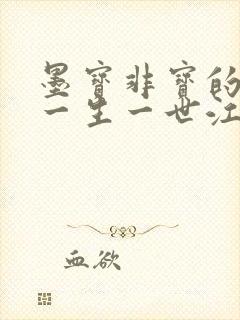 墨宝非宝的
一生一世江
血欲